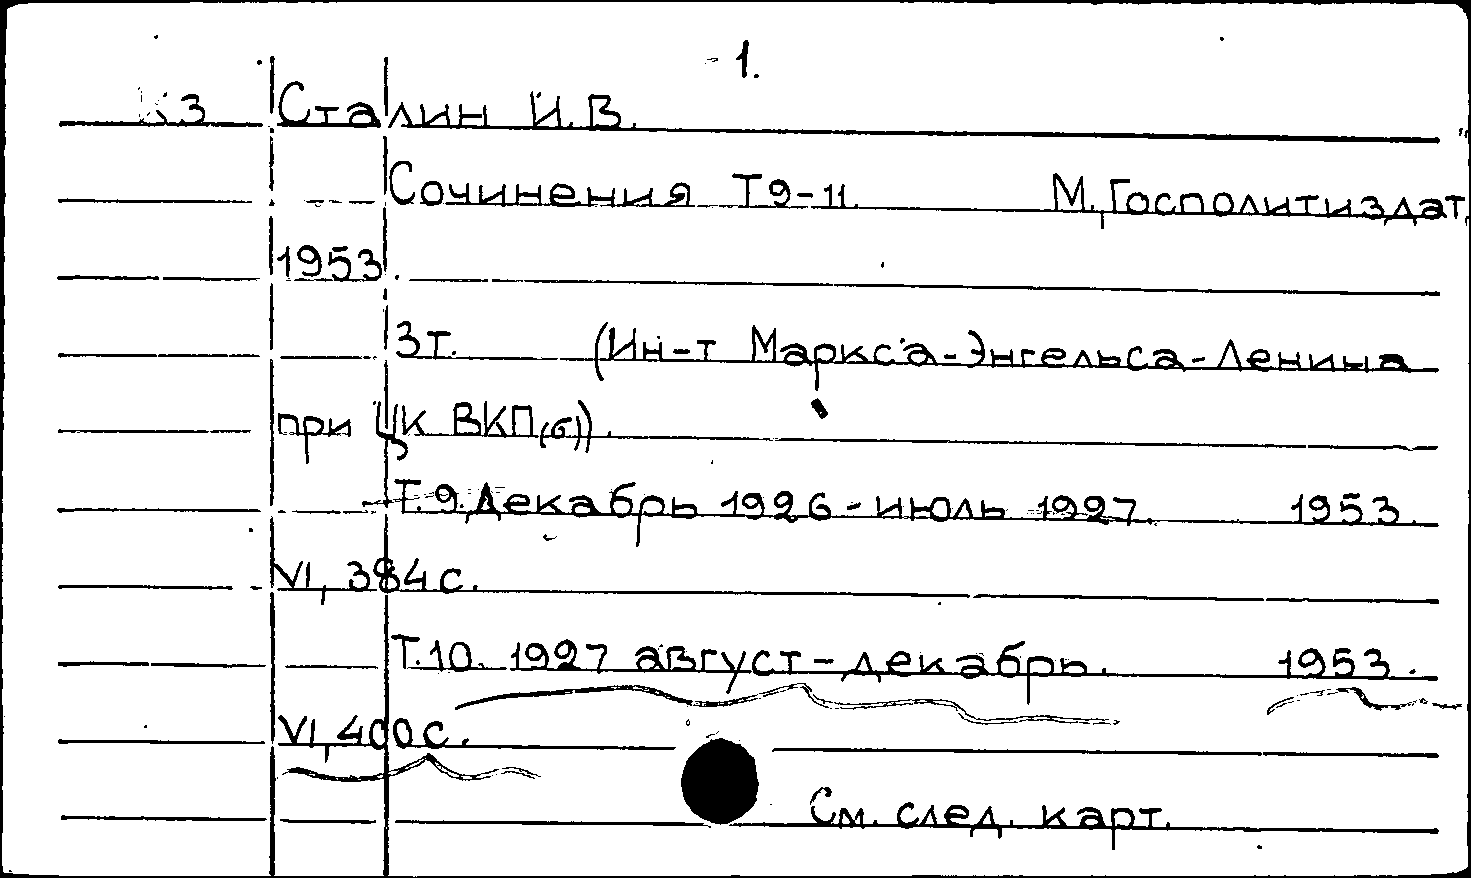 1.
К3 Сталин И.В.
Сочинения Т9-11. М.,Госполитиздат,
1953.
3т. (Ин-т Маркса-Энгельса-Ленина
при ЦК ВКП(б)).
Т.9.Декабрь 1926-июль 1927. 1953.
VI, 384с.
Т.10. 1927 август-декабрь. 1953.
VI, 400с.
См. след. карт.